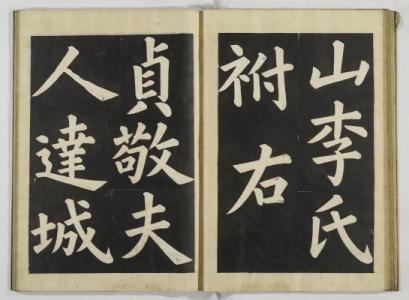 山李氏
祔右
貞敬夫
人達城